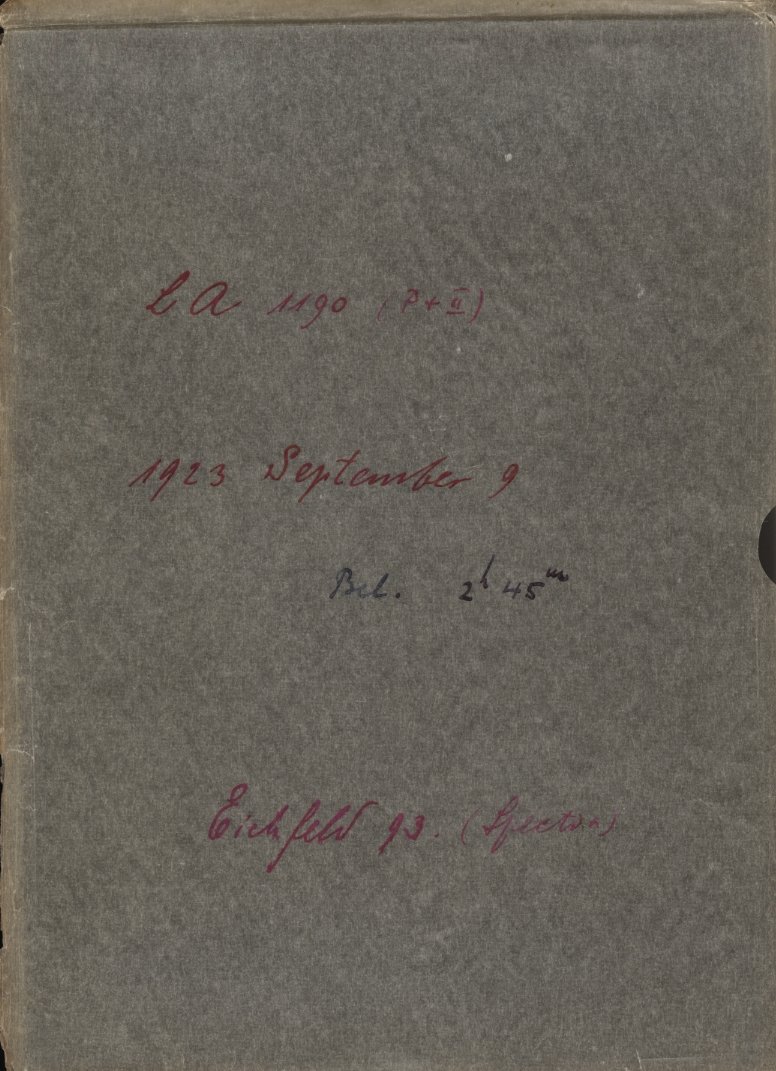 LA 1190 (P+II)
1923 September 9
Bel. 2h 45m
Eichfeld 93. (Spectra)